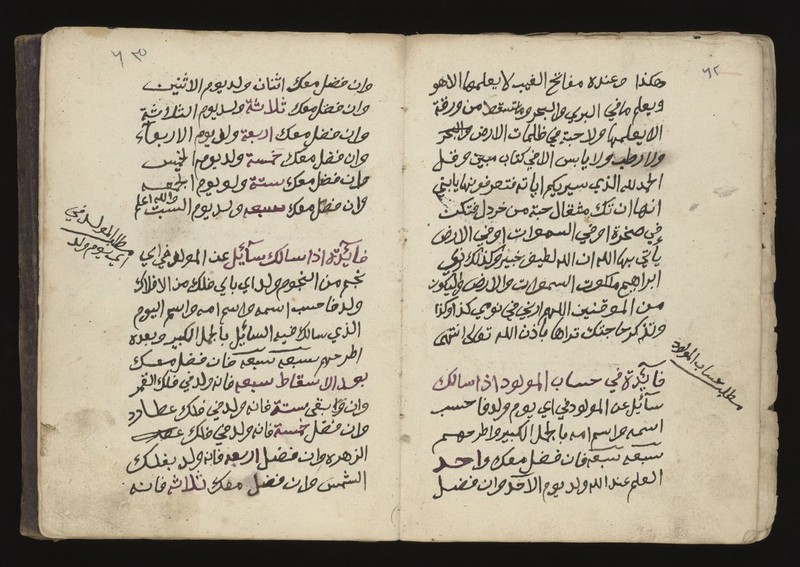 ٦٢
هكذا وعنده مفاتح الغيب لا يعلمها الا هو
ويعلم ما في البرى والبحر وما تسقط من ورقة
الا يعلمها ولا حبة في ظلمات الارض والبحر
ولا رطب ولا يابس الا في كتاب مبين وقل
الحمد لله الذي سيريكم اياته فتعرفونها يا بني
انها ان تك مثقال حبة من خردل فتكن
في صخرة او في السموات او في الارض
يأتي بها الله ان الله لطيف خبير وكذلك نري
ابراهيم ملكوت السموات والارض وليكون
من الموقنين اللهم ارني في نومي كذا وكذا
وتذكر حاجتك تراها باذن الله تعالى انتهى
مطلب حساب المولود
فائدة في حساب المولود اذا سالك
سائل عن المولود في اي يوم ولد فاحسب
اسمه واسم امه بالجمل الكبير واطرحهم
سبعه سبعه فان فضل معك واحد
العلم عند الله ولد يوم الاحد وان فضل
٦٣
وان فضل معك اثنان ولد يوم الاثنين
وان فضل معك ثلاثة ولد يوم الثلاثة
وان فضل معك اربعة ولد يوم الاربعاء
وان فضل معك خمسة ولد يوم الخميس
وان فضل معك ستة ولد يوم الجمعه
وان فضل معك سبعه ولد يوم السبت والله اعلم
مطلب المولد في
اي يوم ولد
فائدة اذا سالك سائل عن المولود في اي
نجم من النجوم ولد اي باي فلك من الافلاك
ولد فاحسب اسمه واسم امه واسم اليوم
الذي سالك فيه السائل بالجمل الكبير وبعده
اطرحهم سبعه سبعه فان فضل معك
بعد الاسقاط سبعه فانه ولد في فلك القمر
وان بقى ستة فانه ولد في فلك عطارد
وان فضل خمسة فانه ولد في فلك
الزهره وان فضل اربعه فانه ولد بفلك
الشمس وان فضل معك ثلاثه فانه